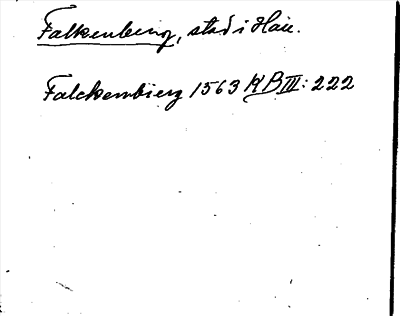 Falkenberg, stad i Hall.
Falckembierg 1563 HB III: 222